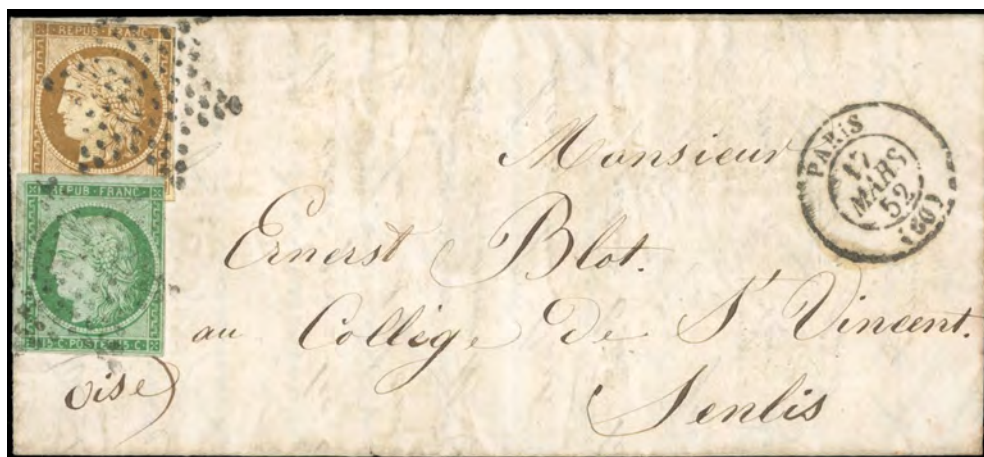 REPUB·FRANC
REPUB·FRANC·
15·C·POSTES·15·C·
PARIS
17
MARS
52
(60)
Monsieur
Ernest Blot.
au Collège de St Vincent.
Senlis
Oise